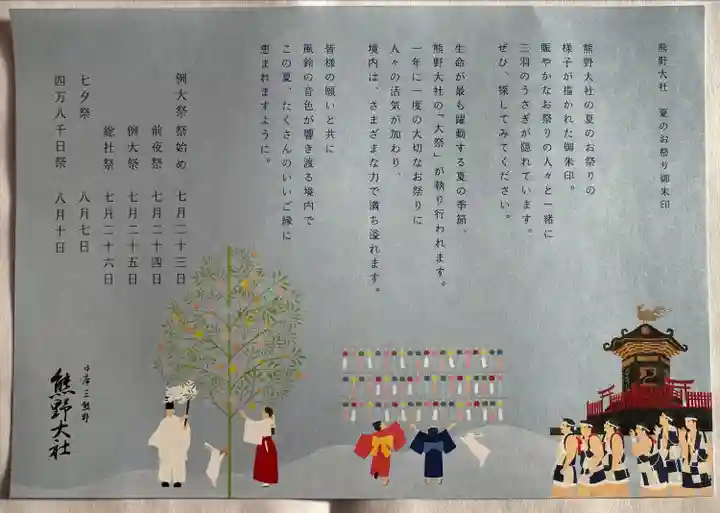 熊野大社　夏のお祭り御朱印
熊野大社の夏のお祭りの
様子が描かれた御朱印。
賑やかなお祭りの人々と一緒に
三羽のうさぎが隠れています。
ぜひ、探してみてください。
生命が最も躍動する夏の季節、
熊野大社の『大祭』が執り行われます。
一年に一度の大切なお祭りに
人々の活気が加わり、
境内は、さまざまな力で満ち溢れます。
皆様の願いと共に
風鈴の音色が響き渡る境内で
この夏、たくさんのいいご縁に
恵まれますように。
例大祭 祭始め　七月二十三日
前夜祭　七月二十四日
例大祭　七月二十五日
総社祭　七月二十六日
七夕祭　八月七日
四万八千日祭　八月十日
日本三熊野
熊野大社